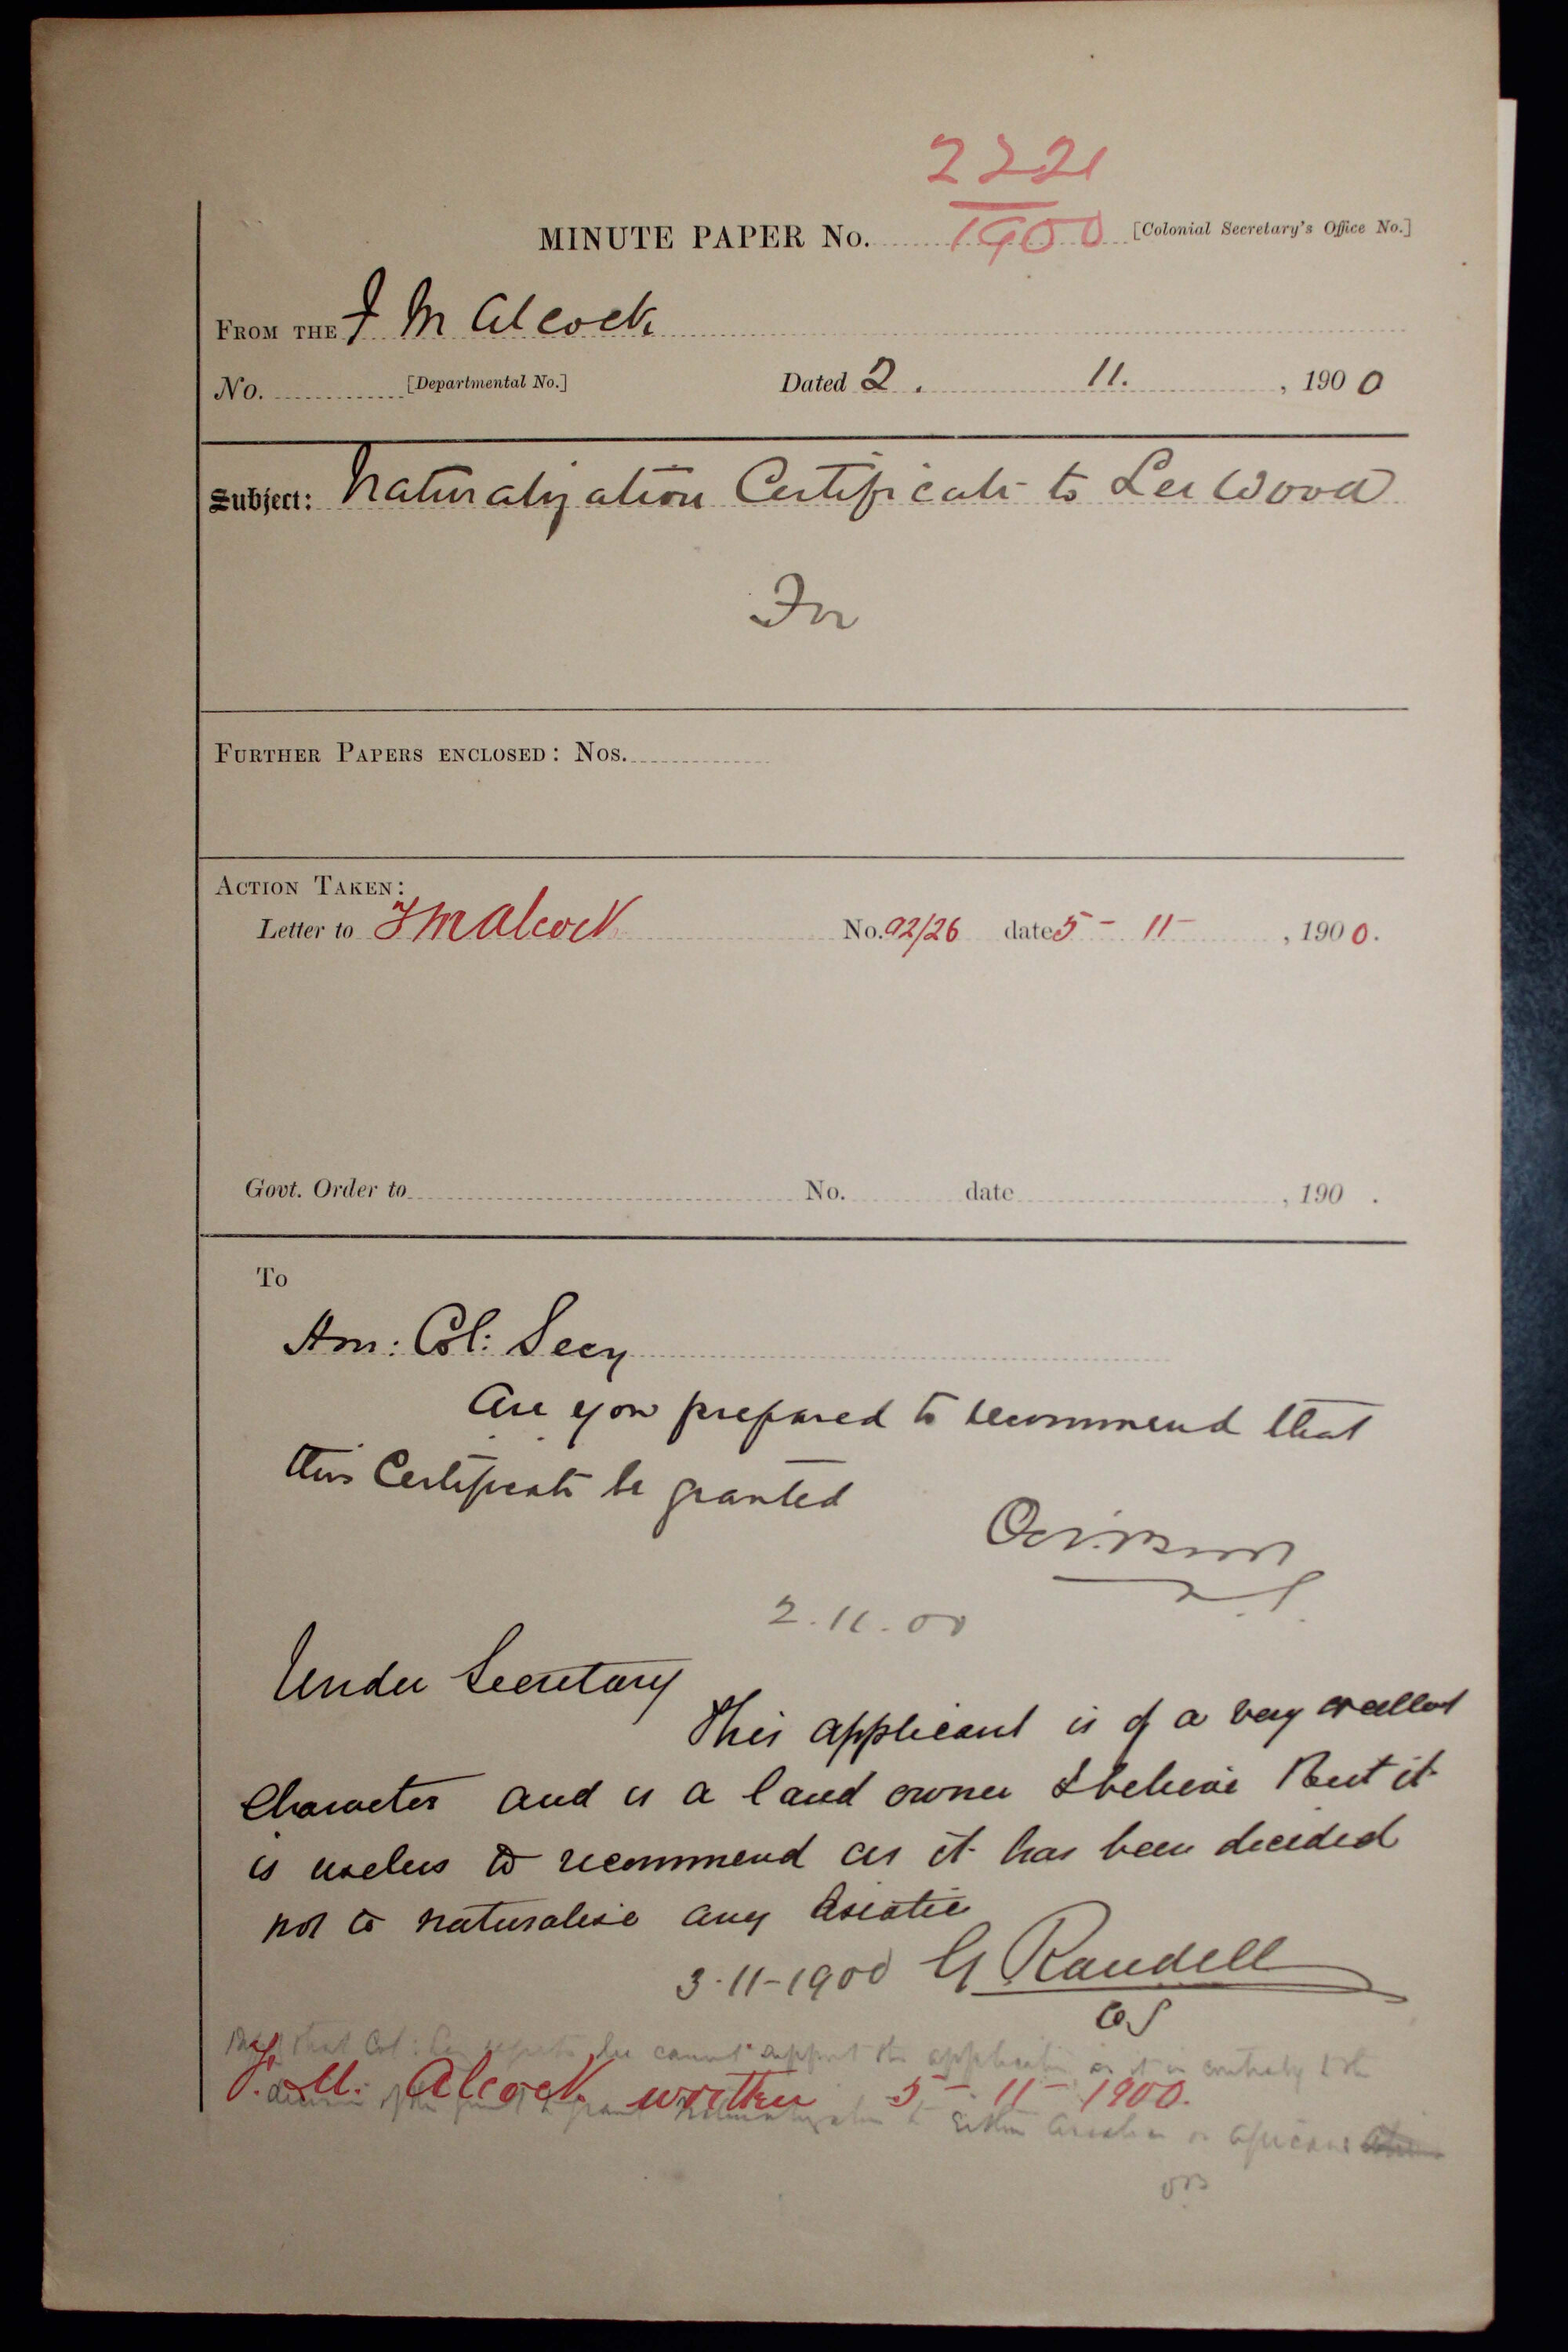 2221
MINUTE PAPER No. 1900 [Colonial Secretary's Office No.]
FROM THE F M Alcock
No. [Departmental No.] Dated 2. 11. , 1900
Subject: Naturalization Certificate to Lee Wood
FURTHER PAPERS ENCLOSED: Nos.
ACTION TAKEN:
Letter to F M Alcock No. 92/26 date 5 - 11 - , 1900.
Govt. Order to No. date , 190 .
To
Hon: Col: Secy
Are you prepared to recommend that
this Certificate be granted
2.11.00
Under Secretary
This applicant is of a very excellent
Character and is a land owner I believe But it
is useless to recommend as it has been decided
not to naturalise any Asiatic
3-11-1900 G Randell
CS
that Col: Sec regrets he cannot support the application as it is contrary to the
F. M. Alcock written 5 - 11 - 1900.
decision of the to grant Naturalization to either Asiatics or Africans
OB